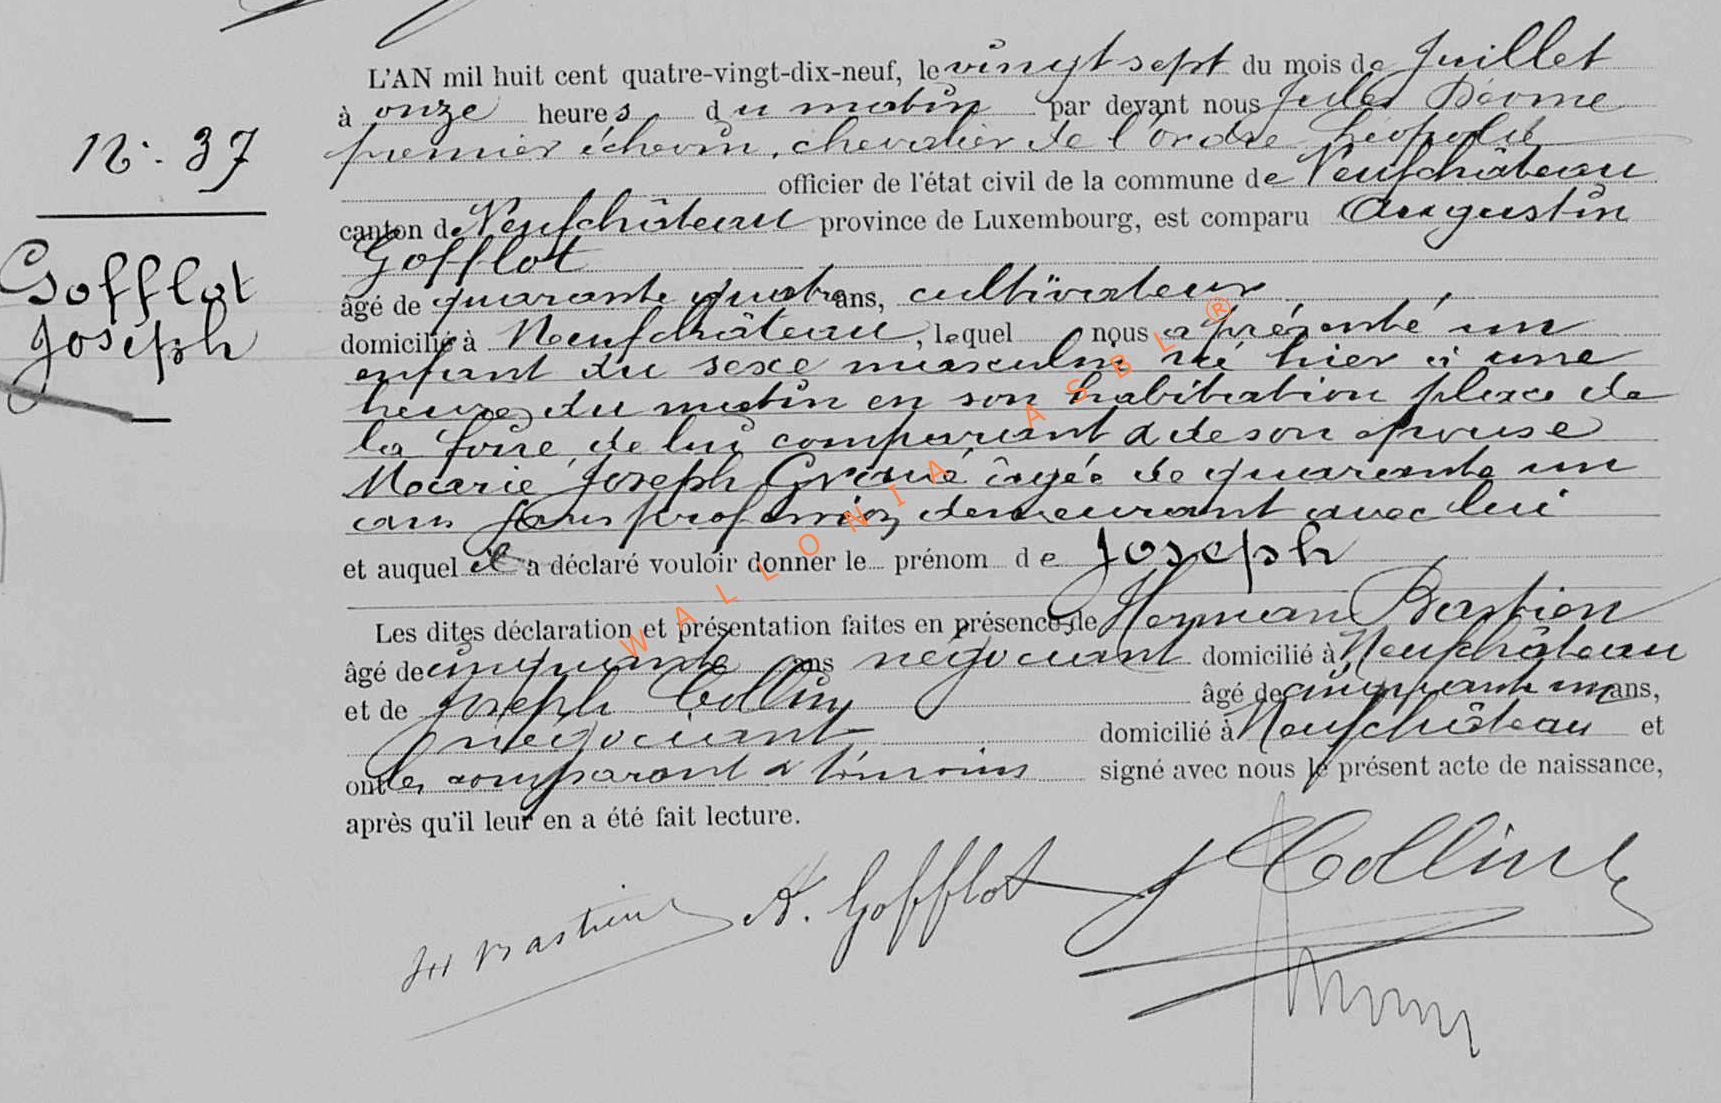 N°. 37
Gofflot
Joseph
L'AN mil huit cent quatre-vingt-dix-neuf, le vingt sept du mois de Juillet
à onze heures du matin par devant nous Jules
premier échevin, chevalier de l'ordre Léopold
officier de l'état civil de la commune de Neufchâteau
canton de Neufchâteau province de Luxembourg, est comparu Augustin
Gofflot
âgé de quarante quatre ans, cultivateur
domicilié à Neufchâteau, lequel nous a présenté un
enfant du sexe masculin né hier à une
heure du matin en son habitation place de
la foire, de lui comparant & de son épouse
Marie Joseph âgée de quarante un
ans sans profession, demeurant avec lui
et auquel il a déclaré vouloir donner le prénom de Joseph
Les dites déclaration et présentation faites en présence de Herman Bastien
âgé de cinquante ans négociant domicilié à Neufchâteau
et de Joseph Collin âgé de cinquante un ans,
négociant domicilié à Neufchâteau et
ont les comparant & témoins signé avec nous le présent acte de naissance,
après qu'il leur en a été fait lecture.
Bastien A. Gofflot J Collin
WALLONIA ASBL ®